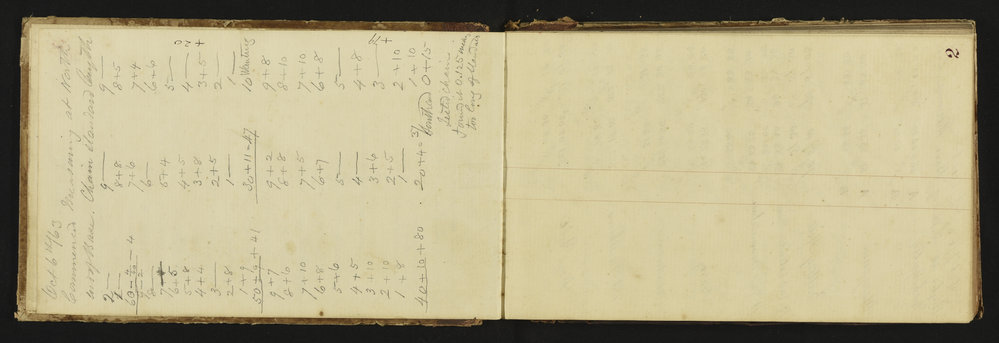 Oct 6th/63
Commenced Measuring at North
end of Base. Chain standard length
2— 9— 9—
1— 8+8 8+5
63-4-4 7+6 7+4
8— 6— 6+6
5+4 5—
6+5
5+8 4+5 4—
4+4 3+8 3+5
3— 2+5 2—
2+8 1— 1—
1+9 30+11-47 10 Wanting
50+9+41
9+7 9+2 9+8
8+6 8+8 8+10
7+10 7+5 7+10
6+8 6+7 6+8
5+6 5— 5—
4+5 4— 4+8
3+10 3+6 3—
2+10 2+5 2+10
1+8 1— 1+10
40+10+80 20+4=37 0+15
Tested chain
found it
too long of standard
2